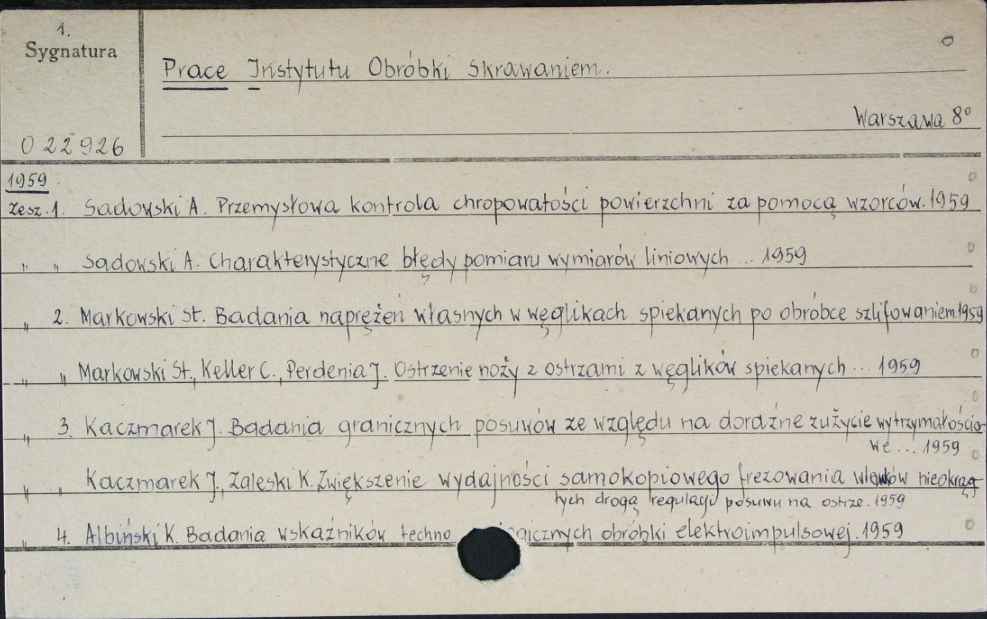 1.
Sygnatura
Prace Instytutu Obróbki Skrawaniem.
Warszawa 8°
022926
1959
Zesz. 1. Sadowski A. Przemysłowa kontrola chropowatości powierzchni za pomocą wzorców. 1959
" " Sadowski A. Charakterystyczne błędy pomiaru wymiarów liniowych ... 1959
" 2. Markowski St. Badania naprężeń własnych w węglikach spiekanych po obróbce szlifowaniem 1959
" " Markowski St., Keller C., Perdenia J. Ostrzenie noży z ostrzami z węglików spiekanych ... 1959
" 3. Kaczmarek J. Badania granicznych posuwów ze względu na doraźne zużycie wytrzymałościo-
we ... 1959
" " Kaczmarek J., Zaleski K. Zwiększenie wydajności samokopiowego frezowania nieokrąg-
łych drogą regulacji posuwu na ostrze. 1959
" 4. Albiński K. Badania wskaźników techno gicznych obróbki elektroimpulsowej. 1959